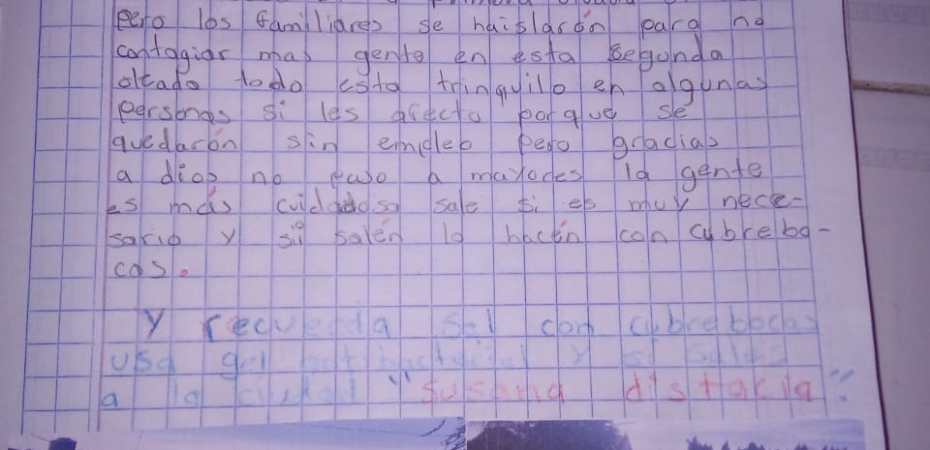 pero los familiares se haislarón para no
contagiar mas gente en esta segunda
oleada todo esta trinquilo en algunas
personas si les afecto porque se
quedarón sin empleo pero gracias
a dios no paso a mayores la gente
es más cuidadosa sale si es muy nece-
sario y si salen lo hacen con cubrebo-
cas.
Y recuerda Sal con cubrebocas
usa gel antibacterial y si sales
a la ciudad "susana distancia".